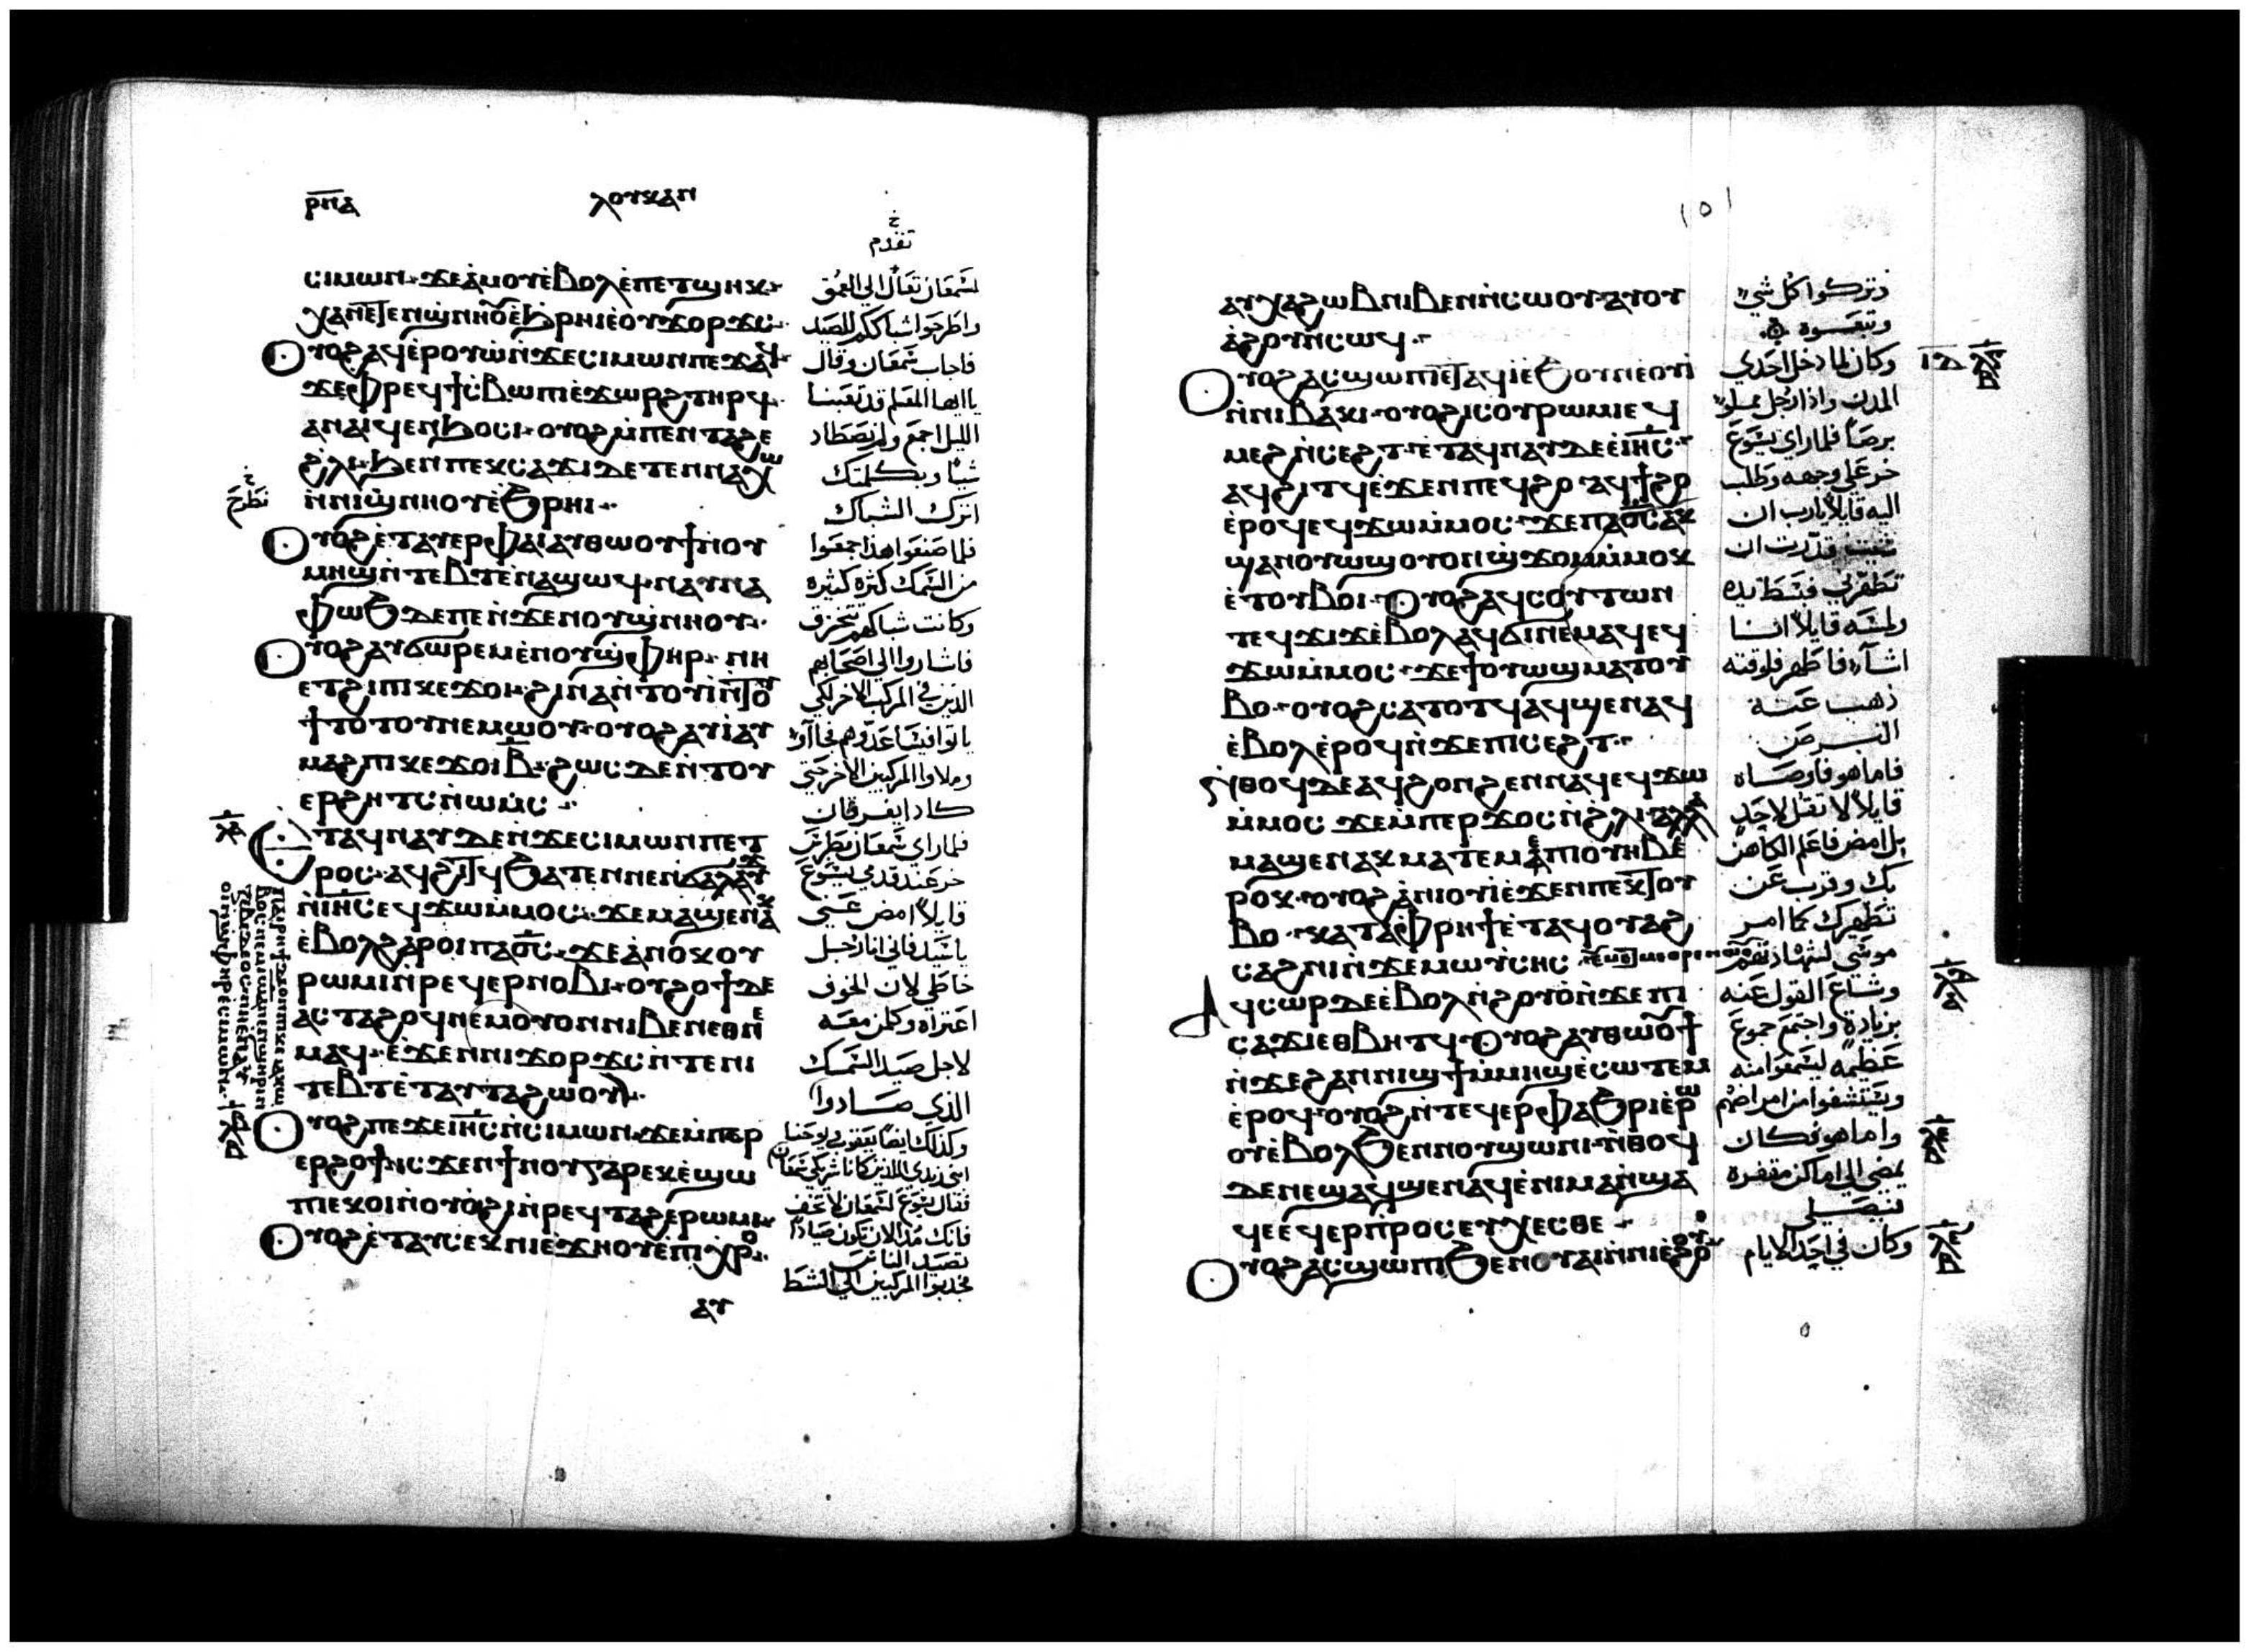 ⲣⲡⲁ ⲗⲟⲩⲕⲁⲛ
خ
تقدم
ⲥⲓⲙⲱⲛ ϫⲉⲁⲙⲟⲩⲉⲃⲟⲗⲉⲡⲉⲧϣⲏⲕ
ⲟⲩⲟϩⲁϥⲉⲣⲟⲩⲱⲛϫⲉⲥⲓⲙⲱⲛⲡⲉϫⲁϥ
ϫⲉⲫⲣⲉϥϯⲥⲃⲱⲡⲓⲉϫⲱⲣϩⲧⲏⲣϥ
ⲁⲛⲁⲓϥⲉⲛϧⲟⲥⲓ ⲟⲩⲟϩⲙⲡⲉⲛⲧⲁϩⲉ
ϩⲗⲓ ϧⲉⲛⲡⲉⲕⲥⲁϫⲓⲇⲉⲧⲉⲛⲛⲁⲭⲱ
ⲛⲛⲓϣⲛⲏⲟⲩⲉϧⲣⲏⲓ
ⲟⲩⲟϩⲉⲧⲁⲩⲉⲣⲫⲁⲓⲁⲩⲑⲱⲟⲩϯⲛⲟⲩ
ⲙⲏϣⲛⲧⲉⲃⲧⲉⲛⲁϣⲱϥ ⲛⲁⲩⲛⲁ
ⲫⲱϧⲇⲉⲡⲉⲛϫⲉⲛⲟⲩϣⲛⲏⲟⲩ
ⲟⲩⲟϩⲁⲩϭⲱⲣⲉⲙⲉⲛⲟⲩϣⲫⲏⲣ ⲛⲏ
ϯⲧⲟⲧⲟⲩⲛⲉⲙⲱⲟⲩ ⲟⲩⲟϩⲁⲩⲓⲁⲩ
ⲙⲁϩⲡⲓⲕⲉϫⲟⲓⲃ ϩⲱⲥⲇⲉⲛⲧⲟⲩ
ⲉⲣϩⲏⲧⲥⲛⲱⲙⲥ
ⲉⲧⲁϥⲛⲁⲩⲇⲉⲛϫⲉⲥⲓⲙⲱⲛⲡⲉⲧ
ⲛⲓⲏⲥⲉϥϫⲱⲙⲙⲟⲥ ϫⲉⲙⲁϣⲉⲛⲁⲕ
ⲉⲃⲟⲗϩⲁⲣⲟⲓⲡⲁⲟⲥ ϫⲉⲁⲛⲟⲕⲟⲩ
ⲣⲱⲙⲓⲛⲣⲉϥⲉⲣⲛⲟⲃⲓ ⲟⲩϩⲟϯⲇⲉ
ⲁⲥⲧⲁϩⲟϥⲛⲉⲙⲟⲩⲟⲛⲛⲓⲃⲉⲛⲉⲑⲛⲉ
ⲙⲁϥ ⲉϫⲉⲛⲛⲓϫⲟⲣϫⲥⲛⲧⲉⲛⲓ
ⲧⲉⲃⲧⲉⲧⲁⲩⲧⲁϩⲱⲟⲩ
ⲟⲩⲟϩⲡⲉϫⲉⲓⲏⲥⲛⲥⲓⲙⲱⲛ ϫⲉⲙⲡⲉⲣ
ⲉⲣϩⲟϯⲓⲥϫⲉⲛϯⲛⲟⲩⲅⲁⲣⲉⲕⲉϣⲱ
ⲡⲓⲉⲕⲟⲓⲛⲟⲩⲟϩⲓⲛⲣⲉϥⲧⲁϩⲉⲣⲱⲙⲓ
ⲟⲩⲟϩⲉⲧⲁⲩⲥⲉⲕⲛⲓⲉϫⲏⲟⲩⲉⲡⲓⲭⲣⲟ
ⲁⲩ
لشمعان تعال الي العمق
واطرحوا شباككم للصيد
فاجاب شمعان وقال
يا ايها المعلم قد تعبنا
الليل اجمع ولم نصطاد
شيا وبكلمتك
اترك الشباك
نطرح
فلما صنعوا هذا جمعوا
من السمك كثره كثيره
وكانت شباكهم تتخرق
فاشاروا الي اصحابهم
الذين في المركب الاخر لكي
وملاوا المركبين الاخر حتي
كادا يغرقان
فلما راي شمعان بطرس
خر عند قدمي يسوع
قايلا امض عني
يا سيد فاني انا رجل
خاطي لان الخوف
اعتراه وكلمن معه
لاجل صيد السمك
الذي صادوا
فقال يسوع لشمعان لا تخف
فانك مذ الان تكون صيادا
تصيد الناس
فجذبوا المركبين الي الشط
١٥١
ⲁⲩⲭⲁϩⲱⲃⲛⲓⲃⲉⲛⲛⲥⲱⲟⲩ ⲁⲩⲟⲩ
ⲁϩⲟⲩⲛⲥⲱϥ
ⲟⲩⲟϩⲁⲥϣⲱⲡⲓⲉⲧⲁϥⲓⲉϧⲟⲩⲛⲉⲟⲩⲓ
ⲛⲛⲓⲃⲁⲕⲓ ⲟⲩⲟϩⲓⲥⲟⲩⲣⲱⲙⲓⲉϥ
ⲙⲉϩⲛⲥⲉϩⲧ ⲉⲧⲁϥⲛⲁⲩⲇⲉⲉⲓⲏⲥ
ⲁϥϩⲓⲧϥⲉϫⲉⲛⲡⲉϥϩⲟ ⲁϥϯϩⲟ
ⲉⲣⲟϥⲉϥϫⲱⲙⲙⲟⲥ ϫⲉⲡⲁⲟⲥⲁⲕ
ϣⲁⲛⲟⲩⲱϣⲟⲩⲟⲛϣϫⲟⲙⲙⲙⲟⲕ
ⲉⲧⲟⲩⲃⲟⲓ ⲟⲩⲟϩⲁϥⲥⲟⲩⲧⲱⲛ
ⲧⲉϥϫⲓϫⲉⲃⲟⲗⲁϥϭⲓⲛⲉⲙⲁϥⲉϥ
ϫⲱⲙⲙⲟⲥ ϫⲉϯⲟⲩⲱϣⲙⲁⲧⲟⲩ
ⲃⲟ ⲟⲩⲟϩⲥⲁⲧⲟⲧϥⲁϥϣⲉⲛⲁϥ
ⲉⲃⲟⲗⲉⲣⲟϥⲛϫⲉⲡⲓⲥⲉϩⲧ
ⲛⲑⲟϥⲇⲉⲁϥϩⲟⲛϩⲉⲛⲛⲁϥⲉϥϫⲱ
ⲣⲟⲕ ⲟⲩⲟϩⲁⲛⲓⲟⲩⲓⲉϫⲉⲛⲡⲉⲕⲧⲟⲩ
ⲃⲟ ⲕⲁⲧⲁⲫⲣⲏϯⲉⲧⲁϥⲟⲩⲁϩ
ⲁϥⲥⲱⲣⲇⲉⲉⲃⲟⲗⲛϩⲟⲩⲟⲛϫⲉⲡⲓ
ⲥⲁϫⲓⲉⲑⲃⲏⲧϥ ⲟⲩⲟϩⲁⲩⲑⲱⲟⲩϯ
ⲛϫⲉϩⲁⲛⲛⲓϣϯⲙⲙⲏϣⲉⲥⲱⲧⲉⲙ
ⲉⲣⲟϥ ⲟⲩⲟϩⲛⲧⲉϥⲉⲣⲫⲁϧⲣⲓⲉⲣⲱ
ⲟⲩⲉⲃⲟⲗϧⲉⲛⲛⲟⲩϣⲱⲛⲓ ⲛⲑⲟϥ
ⲇⲉⲛⲉϣⲁϥϣⲉⲛⲁϥⲉⲛⲓⲙⲁⲛϣⲁ
ϥⲉⲉϥⲉⲣⲡⲣⲟⲥⲉⲩⲭⲉⲥⲑⲉ
ⲟⲩⲟϩⲁⲥϣⲱⲡⲓϧⲉⲛⲟⲩⲁⲓⲛⲛⲓⲉϩⲟⲟⲩ
وتركوا كل شي
وتبعوه
وكان لما دخل احدي
المدن واذا رجل مملو
برصا فلما راي يسوع
خر علي وجهه وطلب
اليه قايلا يا رب ان
شيت قدرت ان
تطهرني فبسط يده
ولمسه قايلا انا
اشآء فاطهر فلوقته
ذهب عنه
البرص
فاما هو فاوصاه
قايلا لا تقل لاحد
بل امض فاعلم الكاهن
بك وقرب عن
تطهيرك كما امر
موسي لشهادتهم
وشاع القول عنه
بزيادة واجتمع جموع
عظيمه ليسمعوا منه
ويستشفوا من امراضهم
واما هو فكان
يمضي الي اماكن مقفره
فيصلي
وكان في احد الايام